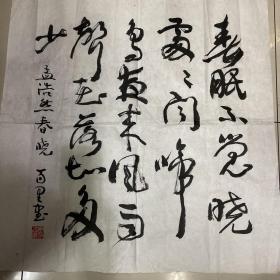 春眠不觉晓
处〻闻啼
鸟夜来风雨
声花落知多
少 孟浩然春晓 百里画